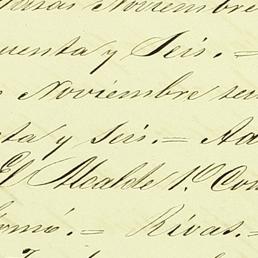 Noviembre
cuenta y Seis. =
Noviembre
ta y seis. = Ad
El Alcalde 1.º Con
tomó. = Rivas. =